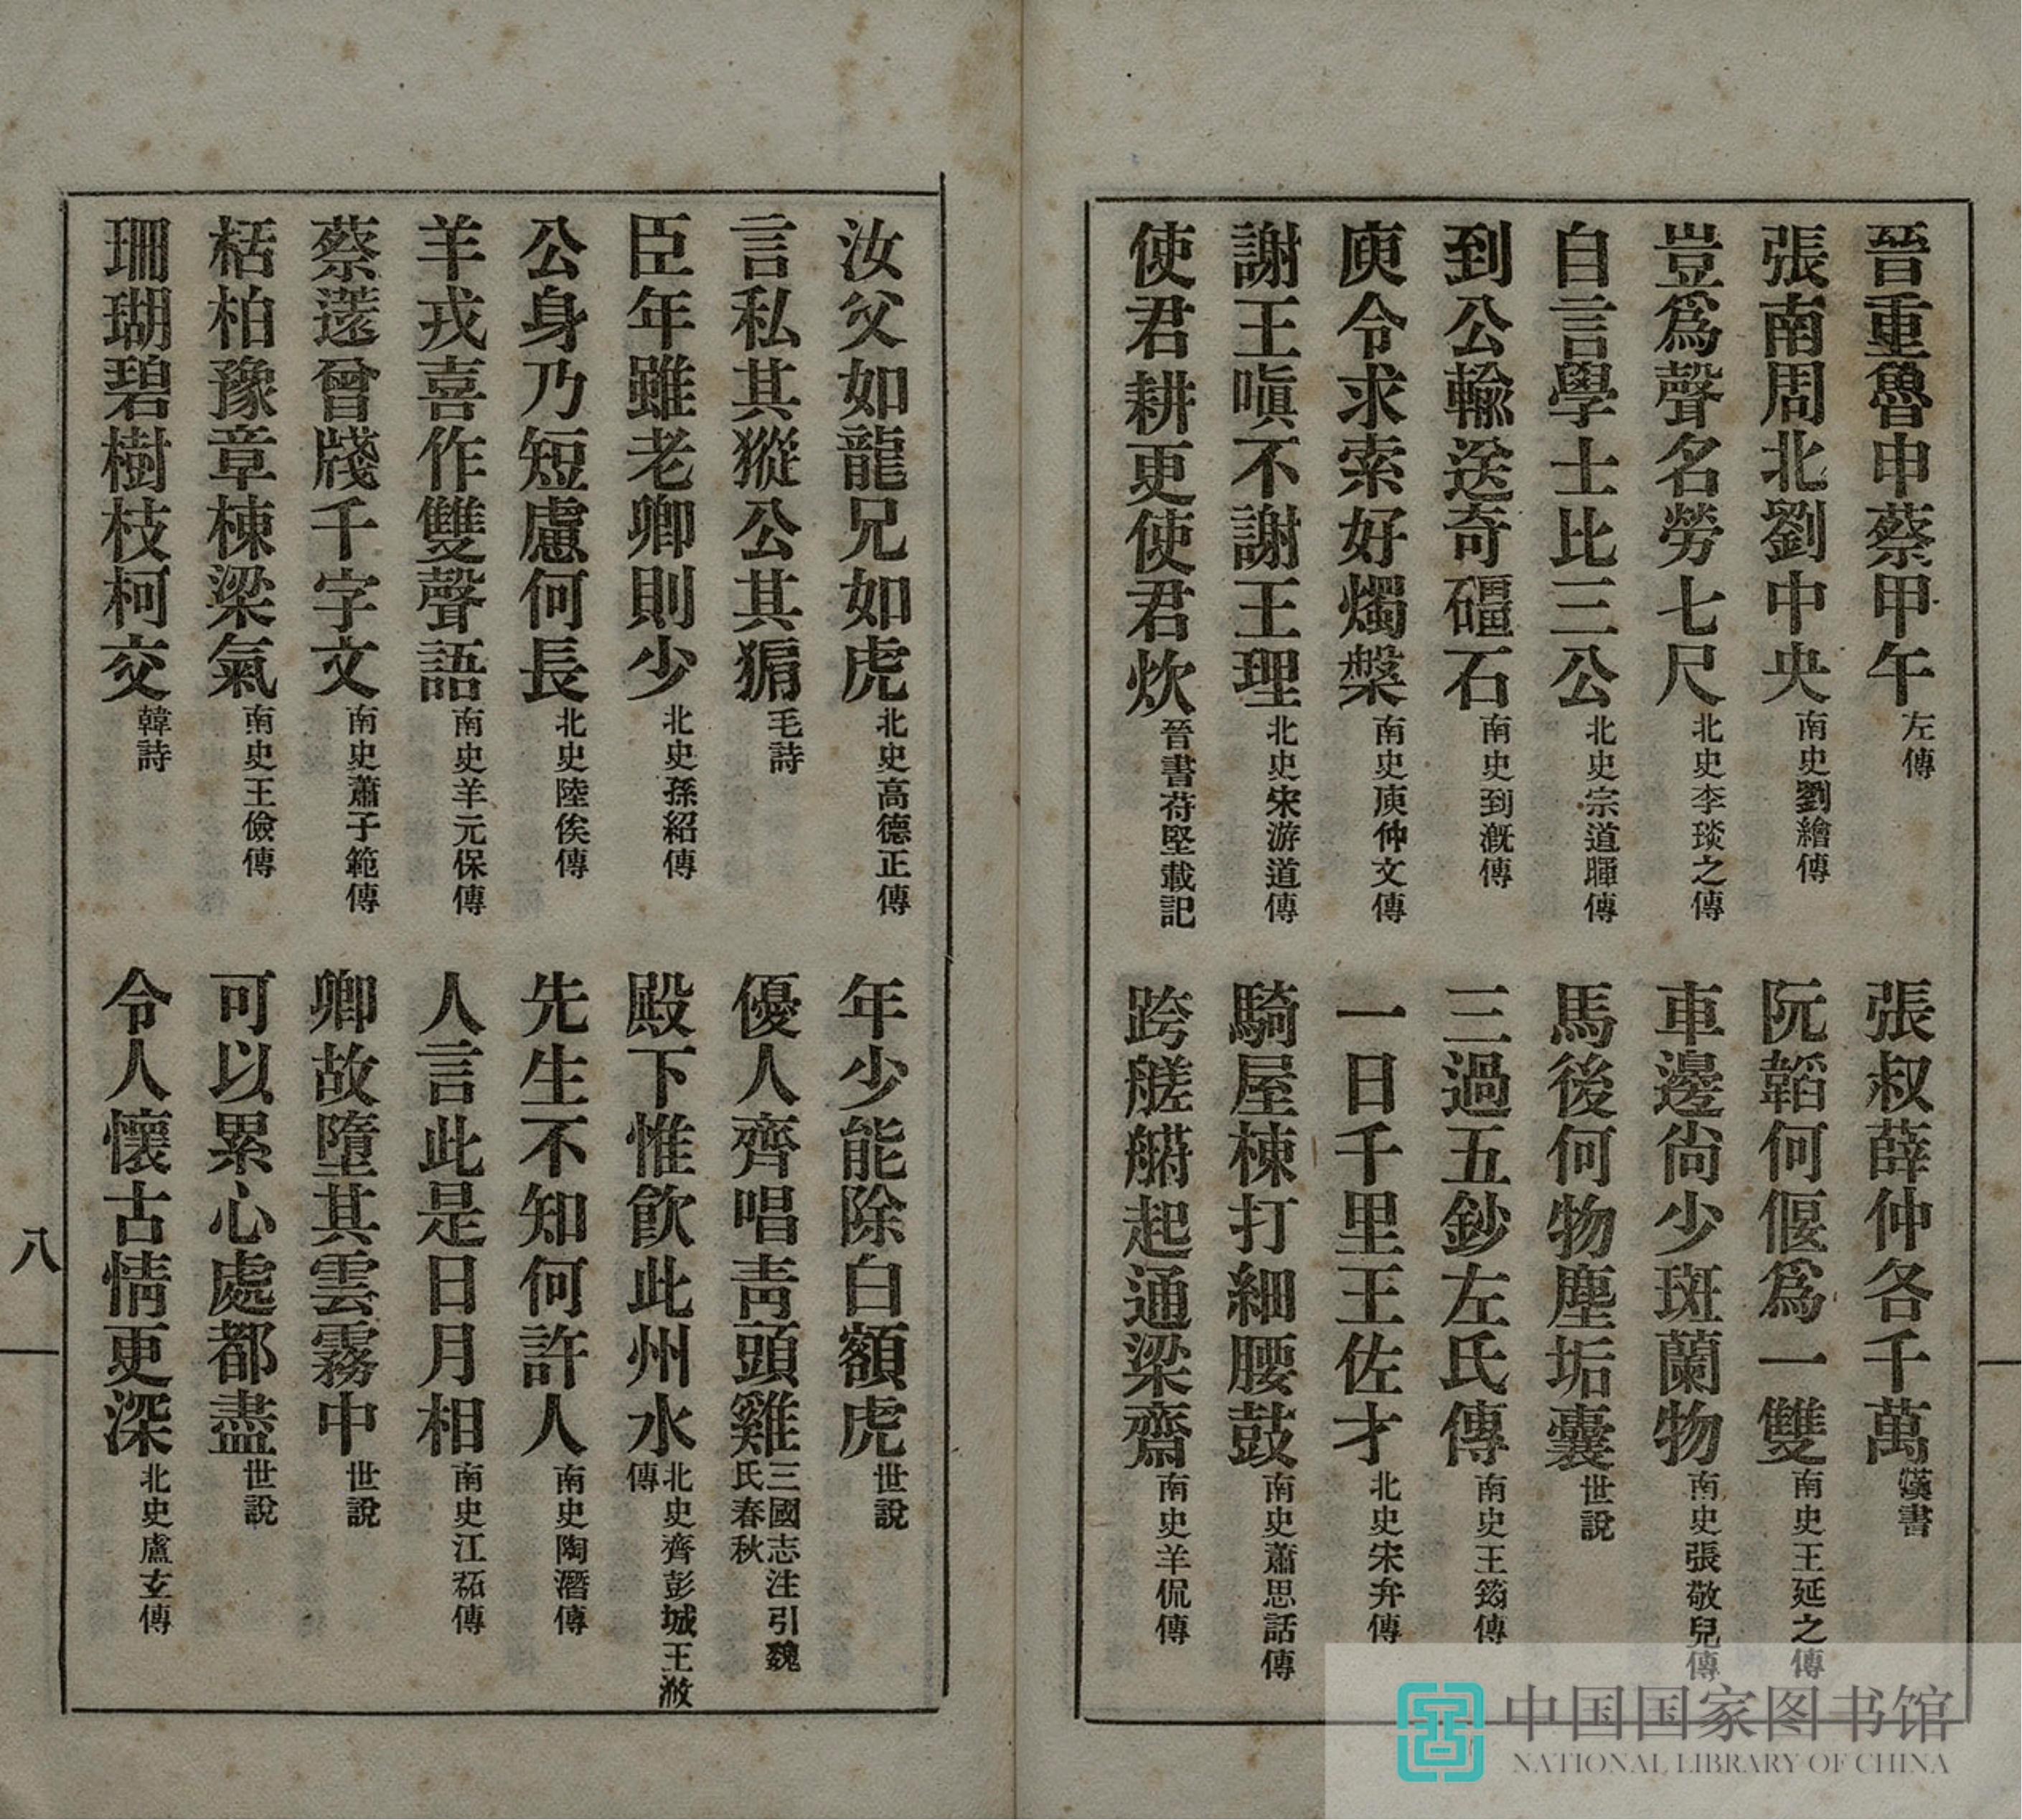 晉重魯申蔡甲午 左傳
張叔薛仲各千萬 漢書
張南周北劉中央 南史劉繪傳
阮韜何偃爲一雙 南史王延之傳
豈爲聲名勞七尺 北史李琰之傳
車邊尙少斑蘭物 南史張敬兒傳
自言學士比三公 北史宗道暉傳
馬後何物塵垢囊 世說
到公輸送奇礓石 南史到漑傳
三過五鈔左氏傳 南史王筠傳
庾令求索好燭槃 南史庾仲文傳
一日千里王佐才 北史宋弁傳
謝王嗔不謝王理 北史宋游道傳
騎屋棟打細腰鼓 南史蕭思話傳
使君耕更使君炊 晉書苻堅載記
跨艖䑰起通梁齋 南史羊侃傳
汝父如龍兄如虎 北史高德正傳
年少能除白額虎 世說
言私其豵公其豜 毛詩
優人齊唱靑頭雞 三國志注引魏氏春秋
臣年雖老卿則少 北史孫紹傳
殿下惟飮此州水 北史齊彭城王浟傳
公身乃短慮何長 北史陸俟傳
先生不知何許人 南史陶潛傳
羊戎喜作雙聲語 南史羊元保傳
人言此是日月相 南史江祏傳
蔡薳曾牋千字文 南史蕭子範傳
卿故墮其雲霧中 世說
栝柏豫章棟梁氣 南史王儉傳
可以累心處都盡 世說
珊瑚碧樹枝柯交 韓詩
令人懷古情更深 北史盧玄傳
八
中国国家图书馆
NATIONAL LIBRARY OF CHINA